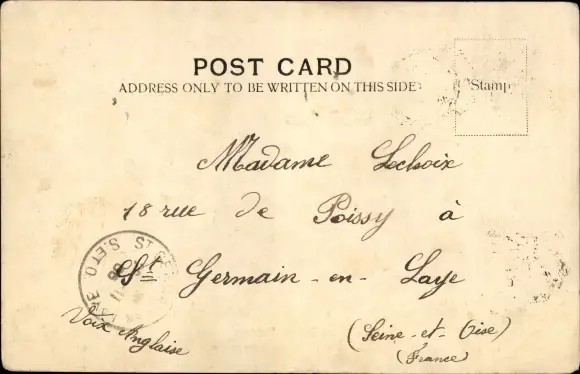 POST CARD
ADDRESS ONLY TO BE WRITTEN ON THIS SIDE
Stamp
Madame Lechoix
18 rue de Poissy à
St Germain-en-Laye
(Seine-et-Oise)
(France)
Voix Anglaise
ST
S.ET O